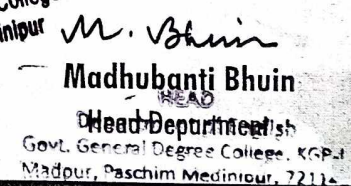 College
inipur
M. Bhuin
Madhubanti Bhuin
HEAD
Head Department
Govt. General Degree College, KGP-I
Madpur, Paschim Medinipur, 7211